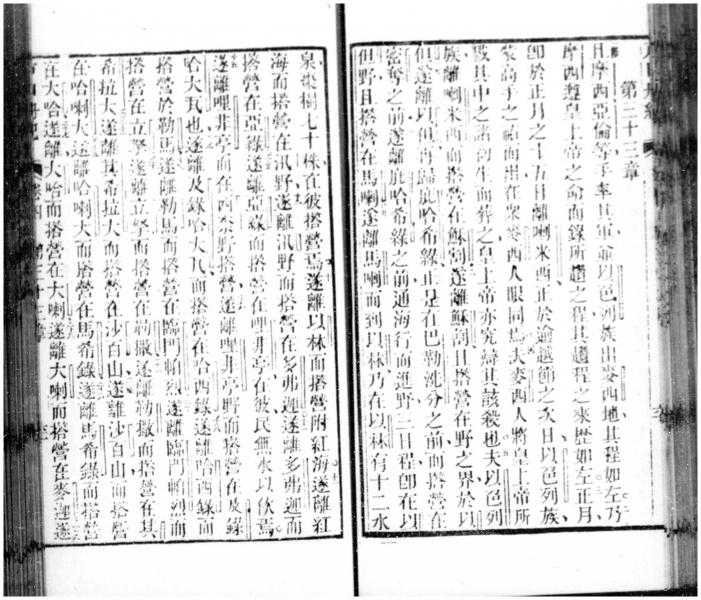 第三十三章
節摩西亞倫等手率其軍俞以色列族出麥西地其程如左乃
摩西遵皇上帝之命而錄所趲之程其趲程之來歷如左正月
卽於正月之十五日離喇米西正於逾越節之次日以色列族
蒙高手之祐而出在眾麥西人眼同焉夫麥西人將皇上帝所
戮其中之諸初生而葬之皇上帝亦究辯其該殺也夫以色列
族離喇米西而搭營在蘇割遂離蘇割且搭營在野之界於以
但遂離以但再歸庇哈希錄正是在巴勒洗分之前而搭營在
密奪之前遂離庇哈希錄之前通海行而進野三日程卽在以
但野且搭營在馬喇遂離馬喇而到以林乃在以林有十二水
泉棗樹七十株在彼搭營焉遂離以林而搭營附紅海遂離紅
海而搭營在汛野遂離汛野而搭營在多弗迦遂離多弗迦而
搭營在亞錄遂離亞錄而搭營在哩非亭在彼民無水以飲焉
遂離哩非亭而在西奈野搭營遂離哩非亭野而搭營在及錄
哈大瓦也遂離及錄哈大瓦而搭營在哈西錄遂離哈西錄而
搭營於勒馬遂離勒馬而搭營在臨門帕烈遂離臨門帕烈而
搭營在立拏遂離立拏而搭營在勒撒遂離勒撒而搭營在其
希拉大遂離其希拉大而搭營在沙白山遂離沙白山而搭營
在哈喇大遂離哈喇大而搭營在馬希錄遂離馬希錄而搭營
在大哈遂離大哈而搭營在大喇遂離大喇而搭營在麥迦遂